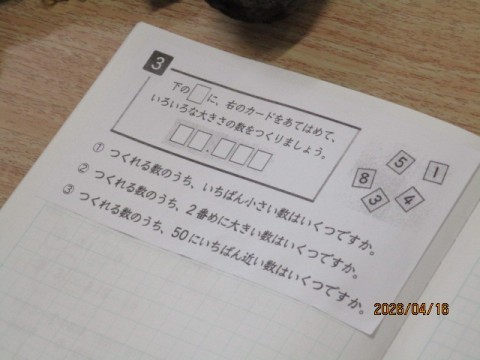 3
下の□に、右のカードをあてはめて、
いろいろな大きさの数をつくりましょう。
□□.□□□
5 1 8 3 4
① つくれる数のうち、いちばん小さい数はいくつですか。
② つくれる数のうち、2番めに大きい数はいくつですか。
③ つくれる数のうち、50にいちばん近い数はいくつですか。
2026/04/16